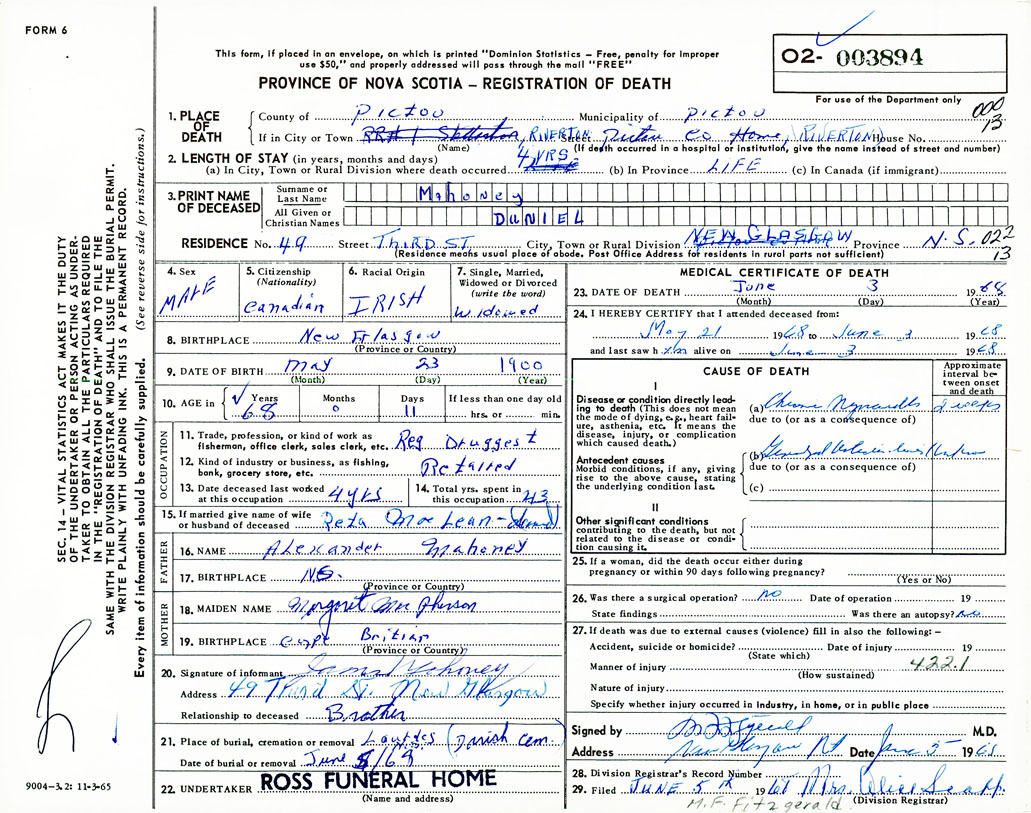 FORM 6
This form, if placed in an envelope, on which is printed "Dominion Statistics – Free, penalty for improper
use $50," and properly addressed will pass through the mail "FREE"
02- 003894
PROVINCE OF NOVA SCOTIA – REGISTRATION OF DEATH
For use of the Department only
000
13
1. PLACE OF DEATH
County of Pictou Municipality of Pictou
If in City or Town RR#1 Stellarton, RIVERTON Street Pictou Co. Home, (RIVERTON) House No.
(Name) (If death occurred in a hospital or institution, give the name instead of street and number)
2. LENGTH OF STAY (in years, months and days)
(a) In City, Town or Rural Division where death occurred 4 YRS. (b) In Province LIFE (c) In Canada (if immigrant)
3. PRINT NAME OF DECEASED
Surname or Last Name Mahoney
All Given or Christian Names DUNIEL
RESIDENCE No. 49 Street THIRD ST. City, Town or Rural Division NEW GLASGOW Province N.S. 022
13
(Residence means usual place of abode. Post Office Address for residents in rural parts not sufficient)
4. Sex MALE
5. Citizenship (Nationality) Canadian
6. Racial Origin IRISH
7. Single, Married, Widowed or Divorced (write the word) Widowed
8. BIRTHPLACE New Glasgow
(Province or Country)
9. DATE OF BIRTH May 23 1900
(Month) (Day) (Year)
10. AGE in Years 68 Months 0 Days 11 If less than one day old hrs. or min.
OCCUPATION
11. Trade, profession, or kind of work as fisherman, office clerk, sales clerk, etc. Reg Druggest
12. Kind of industry or business, as fishing, bank, grocery store, etc. Retired
13. Date deceased last worked at this occupation 4 yrs
14. Total yrs. spent in this occupation 43
15. If married give name of wife or husband of deceased Reta MacLean -
FATHER
16. NAME Alexander Mahoney
17. BIRTHPLACE N.S.
(Province or Country)
MOTHER
18. MAIDEN NAME Margaret MacPherson
19. BIRTHPLACE Cape Britian
(Province or Country)
20. Signature of informant Mahoney
Address 49 Third St. New Glasgow
Relationship to deceased Brother
21. Place of burial, cremation or removal Lourdes (Parish Cem.
Date of burial or removal June 5/68
22. UNDERTAKER ROSS FUNERAL HOME
(Name and address)
MEDICAL CERTIFICATE OF DEATH
23. DATE OF DEATH June 3 1968
(Month) (Day) (Year)
24. I HEREBY CERTIFY that I attended deceased from:
May 21 1968 to June 3 1968
and last saw him alive on June 3 1968
CAUSE OF DEATH
Approximate interval between onset and death
I
Disease or condition directly leading to death (This does not mean the mode of dying, e.g., heart failure, asthenia, etc. It means the disease, injury, or complication which caused death.)
(a) Chronic Myocarditis 2 weeks
due to (or as a consequence of)
Antecedent causes
Morbid conditions, if any, giving rise to the above cause, stating the underlying condition last.
(b) General
due to (or as a consequence of)
(c)
II
Other significant conditions
contributing to the death, but not related to the disease or condition causing it.
25. If a woman, did the death occur either during pregnancy or within 90 days following pregnancy?
(Yes or No)
26. Was there a surgical operation? No Date of operation 19
State findings Was there an autopsy? No
27. If death was due to external causes (violence) fill in also the following: –
Accident, suicide or homicide? Date of injury 19
(State which)
Manner of injury 422.1
(How sustained)
Nature of injury
Specify whether injury occurred in industry, in home, or in public place
Signed by M.D.
Address New Glasgow Date June 5 1968
28. Division Registrar's Record Number
29. Filed JUNE 5th 1968 Mrs. Alice
(Division Registrar)
M.F. Fitzgerald
SEC. 14 – VITAL STATISTICS ACT MAKES IT THE DUTY
OF THE UNDERTAKER OR PERSON ACTING AS UNDER-
TAKER TO OBTAIN ALL THE PARTICULARS REQUIRED
IN THE "REGISTRATION OF DEATH" AND TO FILE THE
SAME WITH THE DIVISION REGISTRAR WHO SHALL ISSUE THE BURIAL PERMIT.
WRITE PLAINLY WITH UNFADING INK. THIS IS A PERMANENT RECORD.
Every item of information should be carefully supplied. (See reverse side for instructions.)
9004-3.2: 11-3-65